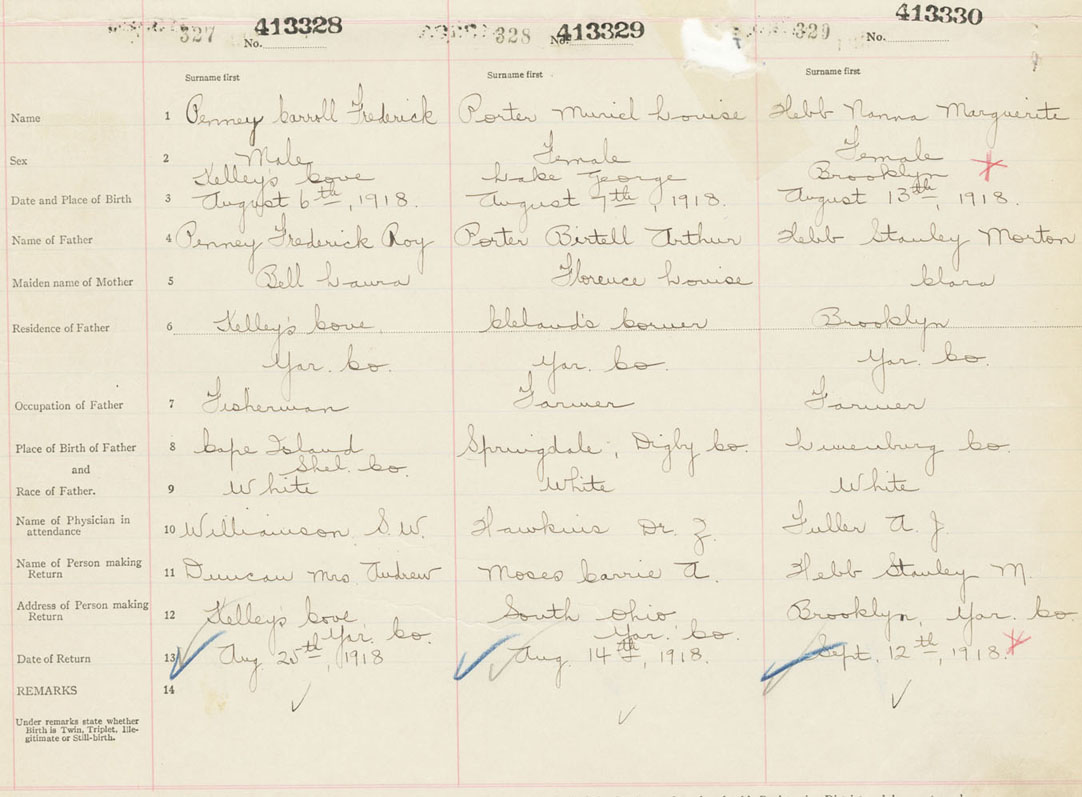 327 413328 328 413329 329 413330
No. No. No.
Surname first Surname first Surname first
Name 1 Penney Carroll Frederick Porter Muriel Louise Hebb Nanna Marguerite
Sex 2 Male Female Female
Kelley's Cove Lake George Brooklyn
Date and Place of Birth 3 August 6th, 1918. August 7th, 1918. August 13th, 1918.
Name of Father 4 Penney Frederick Roy Porter Birtell Arthur Hebb Stanley Morton
Maiden name of Mother 5 Bell Laura Florence Louise Clara
Residence of Father 6 Kelley's Cove Cleland's Corner Brooklyn
Yar. Co. Yar. Co. Yar. Co.
Occupation of Father 7 Fisherman Farmer Farmer
Place of Birth of Father 8 Cape Island Springdale, Digby Co. Lunenburg Co.
and Shel. Co.
Race of Father. 9 White White White
Name of Physician in attendance 10 Williamson S.W. Hawkins Dr. Z. Fuller A. J.
Name of Person making Return 11 Duncan Mrs. Andrew Moses Carrie A. Hebb Stanley M.
Address of Person making Return 12 Kelley's Cove, South Ohio, Brooklyn, Yar. Co.
Yar. Co. Yar. Co.
Date of Return 13 Aug 25th, 1918 Aug. 14th, 1918. Sept. 12th, 1918.
REMARKS 14
Under remarks state whether
Birth is Twin, Triplet, Ille-
gitimate or Still-birth.